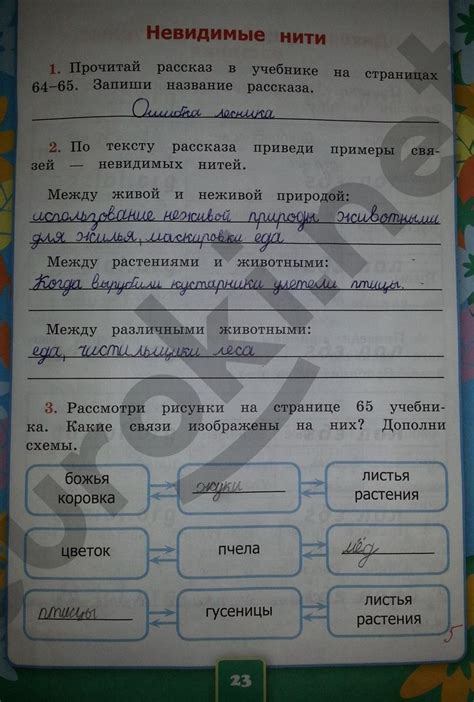 Невидимые нити
1. Прочитай рассказ в учебнике на страницах
64–65. Запиши название рассказа.
Ошибка лесника
2. По тексту рассказа приведи примеры свя-
зей — невидимых нитей.
Между живой и неживой природой:
использование неживой природы животными
для жилья, маскировки еда
Между растениями и животными:
Когда вырубили кустарники улетели птицы.
Между различными животными:
еда, чистильщики леса
3. Рассмотри рисунки на странице 65 учебни-
ка. Какие связи изображены на них? Дополни
схемы.
божья
коровка
жуки
листья
растения
цветок
пчела
мёд
птицы
гусеницы
листья
растения
5
23
euroki.net